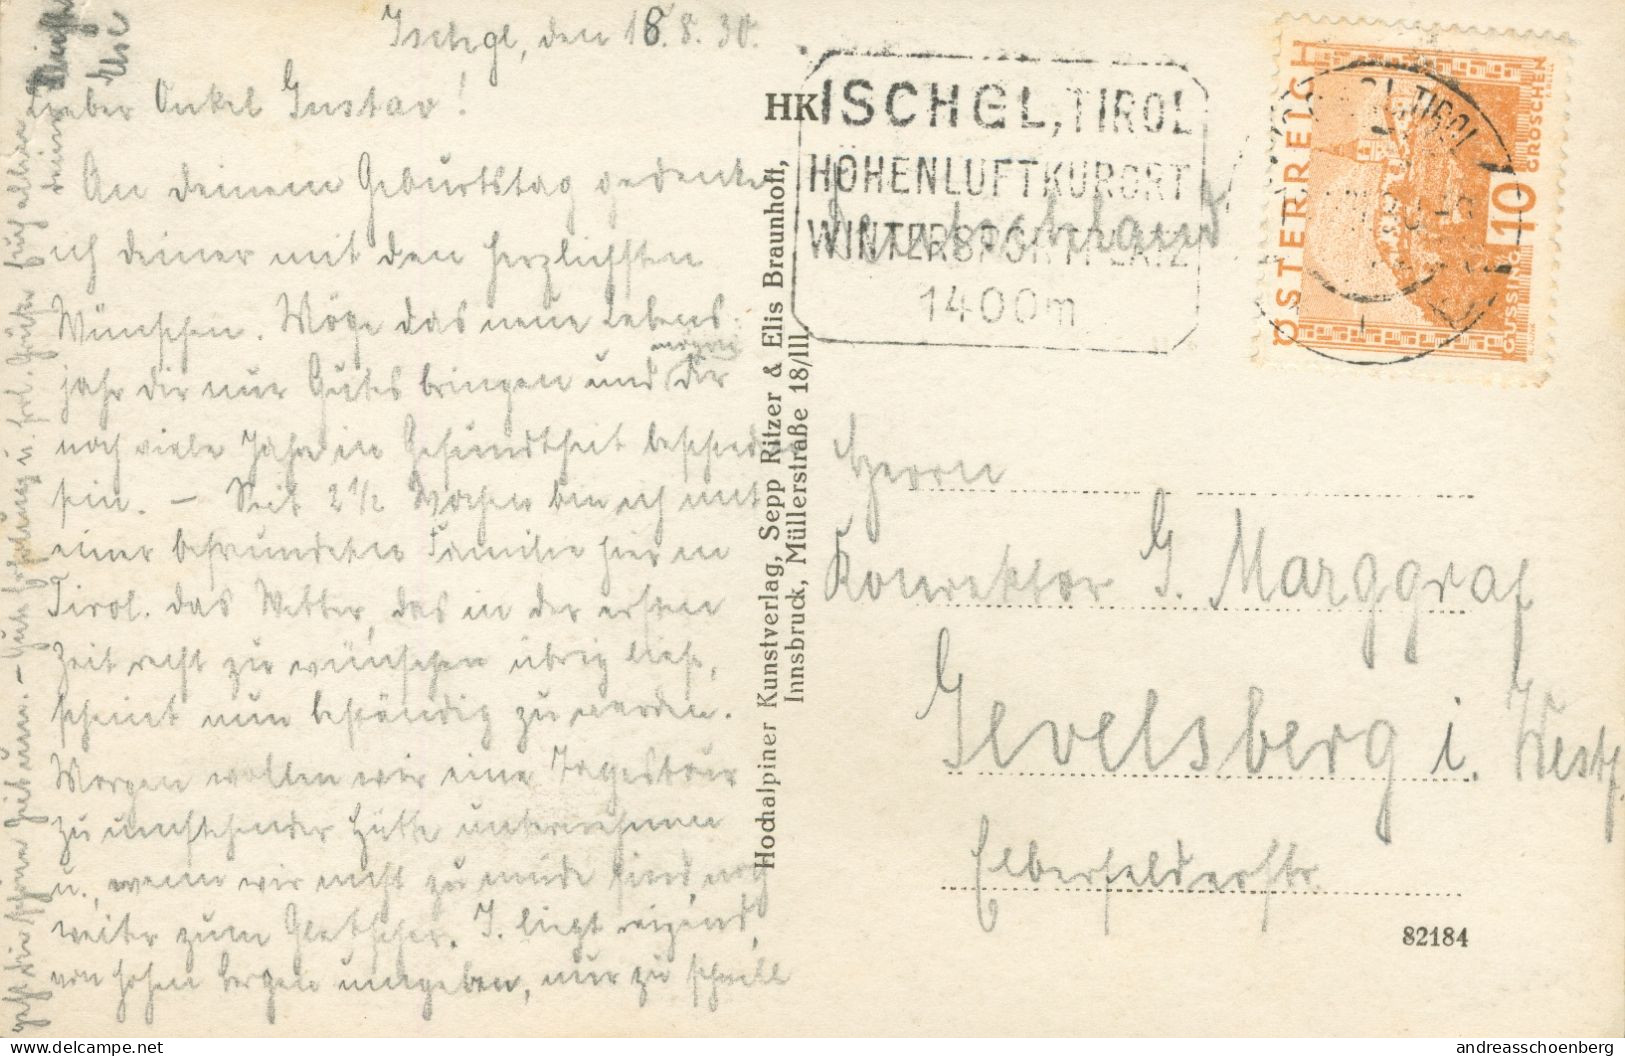 Ischgl, den 18.8.30.
Lieber Onkel Gustav!
An deinem Geburtstag gedenke
ich deiner mit den herzlichsten
Wünschen. Möge das neue Lebens-
jahr dir nur Gutes bringen und dir
mögen
noch viele Jahre in Gesundheit beschieden
sein. – Seit 2 1/2 Wochen bin ich mit
einer befreundeten Familie hier in
Tirol. Das Wetter, das in der ersten
Zeit recht zu wünschen übrig ließ,
scheint nun beständig zu werden.
Morgen wollen wir eine Tagestour
zu umstehender Hütte unternehmen
u., wenn wir nicht zu müde sind, noch
weiter zum Gletscher. I. liegt reizend,
von hohen Bergen umgeben, nur zu schnell
geht die schöne Zeit um. – Gute Erholung u. hrl. Grüße für alle
deine
HK
Hochalpiner Kunstverlag, Sepp Ritzer & Elis Braunhoff,
Innsbruck, Müllerstraße 18/III.
ISCHGL, TIROL
HÖHENLUFTKURORT
WINTERSPORTPLATZ
1400m
ÖSTERREICH
10 GROSCHEN
GÜSSING
TIROL
Herrn
Konrektor G. Marggraf
Gevelsberg i. Westf.
Elberfelderstr.
82184
www.delcampe.net
andreasschoenberg